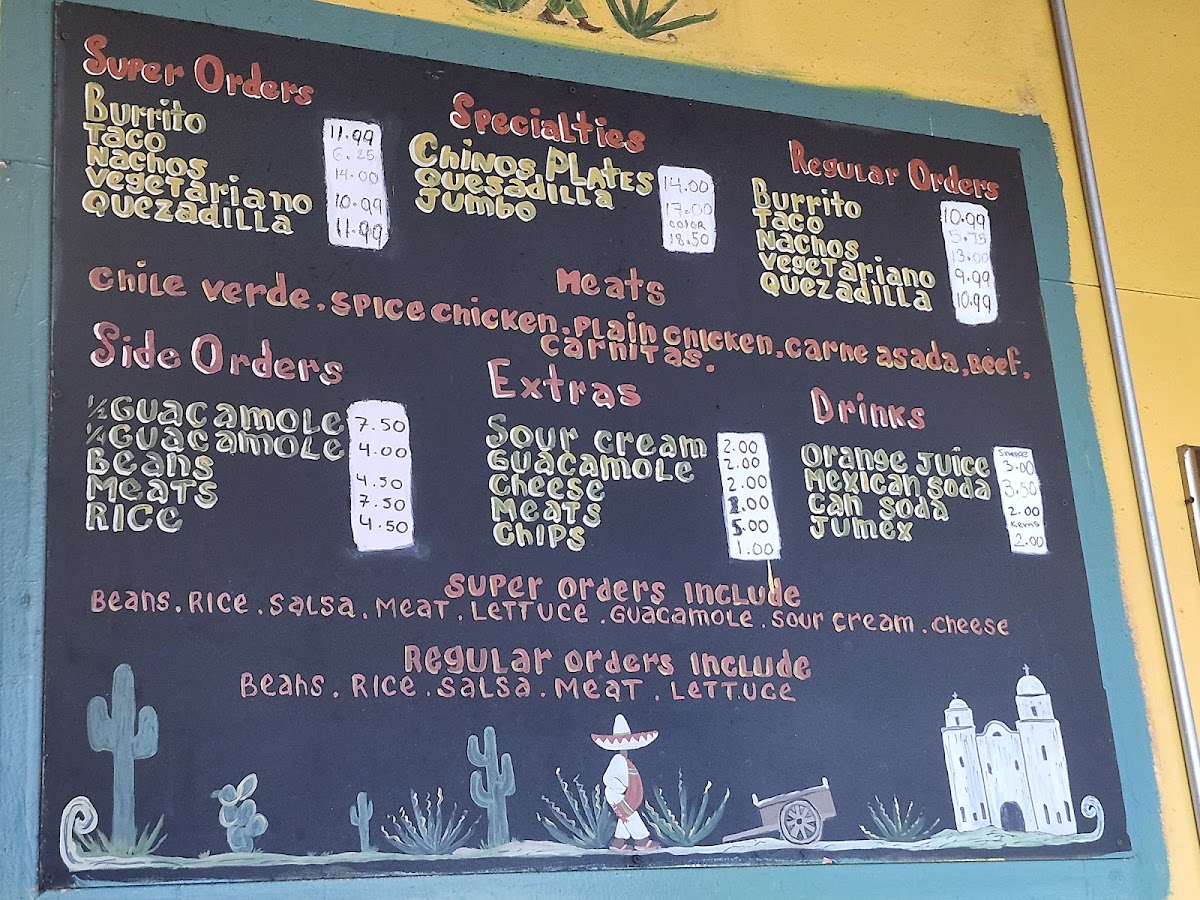 Super Orders
Burrito 11.99
Taco 6.25
Nachos 14.00
Vegetariano 10.99
Quezadilla 11.99
Specialties
Chinos Plates 14.00
Quesadilla 17.00
Jumbo COLOR 18.50
Regular Orders
Burrito 10.99
Taco 5.75
Nachos 13.00
Vegetariano 9.99
Quezadilla 10.99
Meats
Chile Verde, Spice Chicken, Plain Chicken, Carne Asada, Beef,
Carnitas.
Side Orders
½ Guacamole 7.50
¼ Guacamole 4.00
Beans 4.50
Meats 7.50
Rice 4.50
Extras
Sour Cream 2.00
Guacamole 2.00
Cheese 2.00
Meats .00
Chips 5.00
1.00
Drinks
Orange Juice Snapple 3.00
Mexican Soda 3.50
Can Soda 2.00
Jumex Kerns 2.00
Super Orders Include
Beans . Rice . Salsa . Meat . Lettuce . Guacamole . Sour Cream . Cheese
Regular Orders Include
Beans . Rice . Salsa . Meat . Lettuce